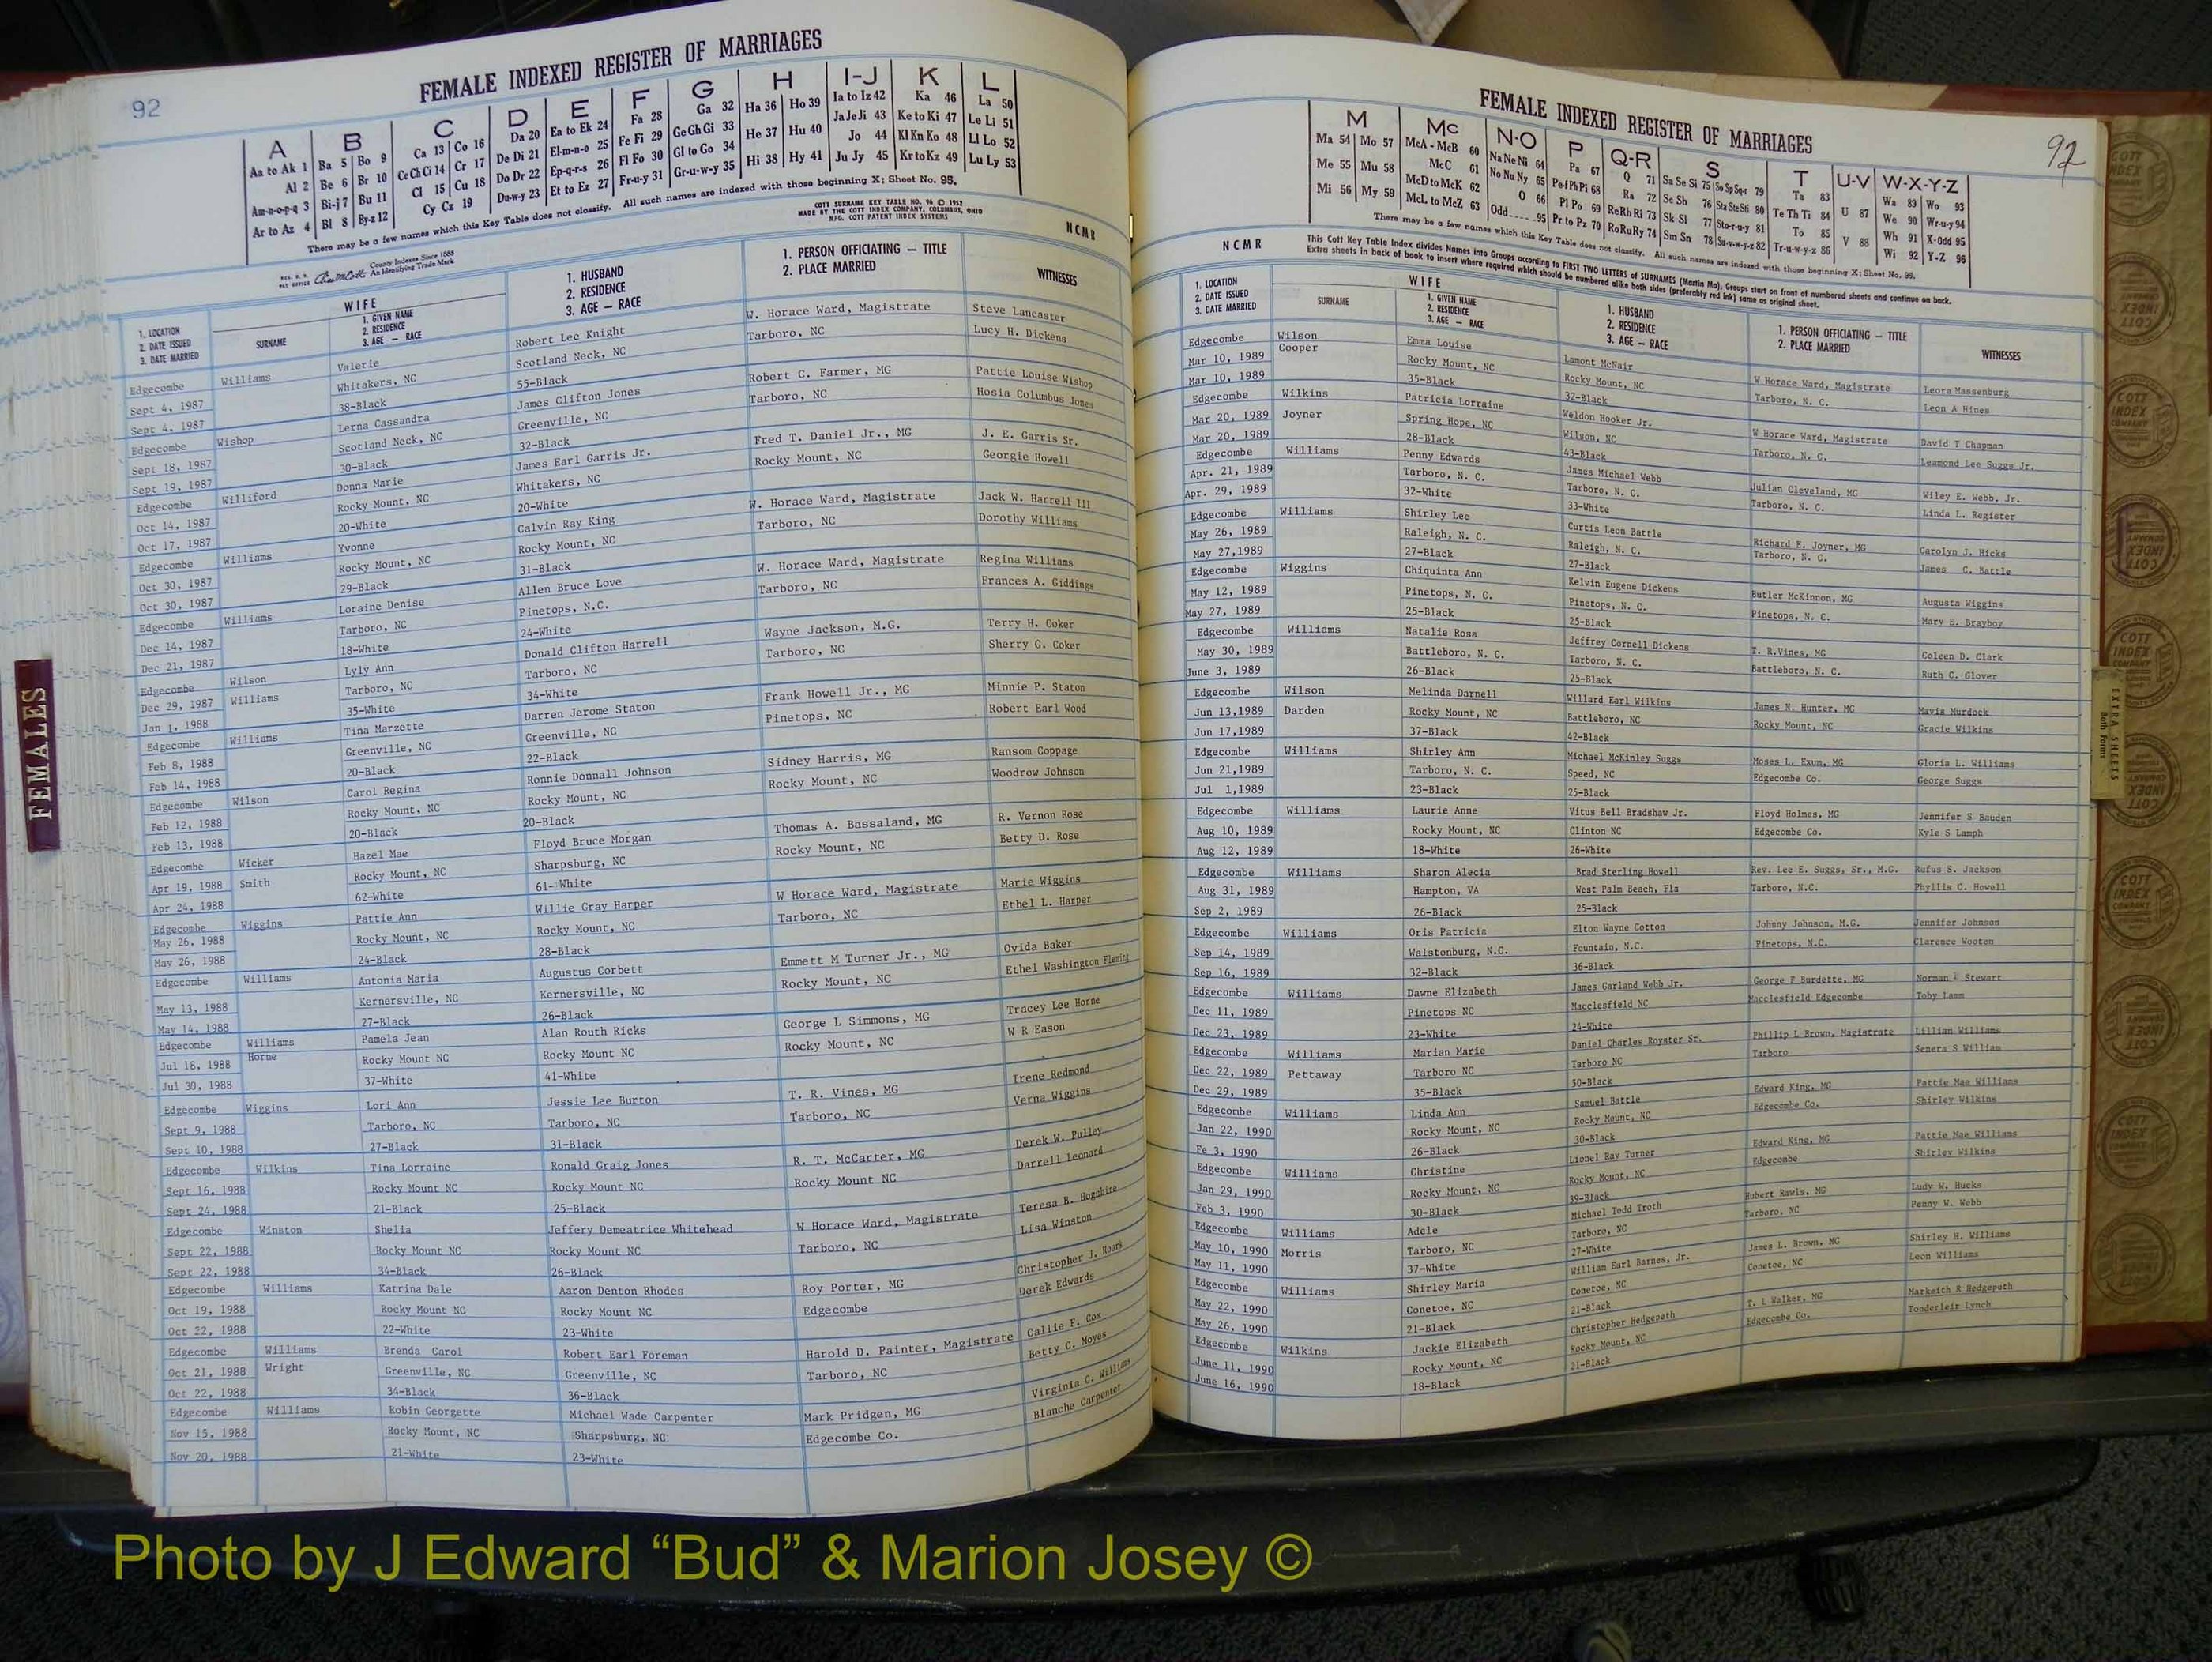 92
FEMALE INDEXED REGISTER OF MARRIAGES
A B C D E F G H I-J K L
Aa to Ak 1 Ba 5 Bo 9 Ca 13 Co 16 Da 20 Ea to Ek 24 Fa 28 Ga 32 Ha 36 Ho 39 Ia to Iz 42 Ka 46 La 50
Al 2 Be 6 Br 10 Ce Ch Ci 14 Cr 17 De Di 21 El-m-n-o 25 Fe Fi 29 Ge Gh Gi 33 He 37 Hu 40 Ja Je Ji 43 Ke to Ki 47 Le Li 51
Am-n-o-p-q 3 Bi-j 7 Bu 11 Cl 15 Cu 18 Do Dr 22 Ep-q-r-s 26 Fl Fo 30 Gl to Go 34 Hi 38 Hy 41 Jo 44 Kl Kn Ko 48 Ll Lo 52
Ar to Az 4 Bl 8 By-z 12 Cy Cz 19 Du-w-y 23 Et to Ez 27 Fr-u-y 31 Gr-u-w-y 35 Ju Jy 45 Kr to Kz 49 Lu Ly 53
There may be a few names which this Key Table does not classify. All such names are indexed with those beginning X; Sheet No. 95.
County Indexes Since 1888
An Identifying Trade Mark
COTT SURNAME KEY TABLE NO. 96 © 1952
MADE BY THE COTT INDEX COMPANY, COLUMBUS, OHIO
MFG. COTT PATENT INDEX SYSTEMS
NCMR
1. LOCATION
2. DATE ISSUED
3. DATE MARRIED
WIFE
SURNAME
1. GIVEN NAME
2. RESIDENCE
3. AGE — RACE
1. HUSBAND
2. RESIDENCE
3. AGE — RACE
1. PERSON OFFICIATING — TITLE
2. PLACE MARRIED
WITNESSES
Edgecombe Williams Valerie Robert Lee Knight W. Horace Ward, Magistrate Steve Lancaster
Sept 4, 1987 Whitakers, NC Scotland Neck, NC Tarboro, NC Lucy H. Dickens
Sept 4, 1987 38-Black 55-Black
Edgecombe Wishop Lerna Cassandra James Clifton Jones Robert C. Farmer, MG Pattie Louise Wishop
Sept 18, 1987 Scotland Neck, NC Greenville, NC Tarboro, NC Hosia Columbus Jones
Sept 19, 1987 30-Black 32-Black
Edgecombe Williford Donna Marie James Earl Garris Jr. Fred T. Daniel Jr., MG J. E. Garris Sr.
Oct 14, 1987 Rocky Mount, NC Whitakers, NC Rocky Mount, NC Georgie Howell
Oct 17, 1987 20-White 20-White
Edgecombe Williams Yvonne Calvin Ray King W. Horace Ward, Magistrate Jack W. Harrell III
Oct 30, 1987 Rocky Mount, NC Rocky Mount, NC Tarboro, NC Dorothy Williams
Oct 30, 1987 29-Black 31-Black
Edgecombe Williams Loraine Denise Allen Bruce Love W. Horace Ward, Magistrate Regina Williams
Dec 14, 1987 Tarboro, NC Pinetops, N.C. Tarboro, NC Frances A. Giddings
Dec 21, 1987 18-White 24-White
Edgecombe Wilson Lyly Ann Donald Clifton Harrell Wayne Jackson, M.G. Terry H. Coker
Dec 29, 1987 Williams Tarboro, NC Tarboro, NC Tarboro, NC Sherry G. Coker
Jan 1, 1988 35-White 34-White
Edgecombe Williams Tina Marzette Darren Jerome Staton Frank Howell Jr., MG Minnie P. Staton
Feb 8, 1988 Greenville, NC Greenville, NC Pinetops, NC Robert Earl Wood
Feb 14, 1988 20-Black 22-Black
Edgecombe Wilson Carol Regina Ronnie Donnall Johnson Sidney Harris, MG Ransom Coppage
Feb 12, 1988 Rocky Mount, NC Rocky Mount, NC Rocky Mount, NC Woodrow Johnson
Feb 13, 1988 20-Black 20-Black
Edgecombe Wicker Hazel Mae Floyd Bruce Morgan Thomas A. Bassaland, MG R. Vernon Rose
Apr 19, 1988 Smith Rocky Mount, NC Sharpsburg, NC Rocky Mount, NC Betty D. Rose
Apr 24, 1988 62-White 61-White
Edgecombe Wiggins Pattie Ann Willie Gray Harper W Horace Ward, Magistrate Marie Wiggins
May 26, 1988 Rocky Mount, NC Rocky Mount, NC Tarboro, NC Ethel L. Harper
May 26, 1988 24-Black 28-Black
Edgecombe Williams Antonia Maria Augustus Corbett Emmett M Turner Jr., MG Ovida Baker
May 13, 1988 Kernersville, NC Kernersville, NC Rocky Mount, NC Ethel Washington Fleming
May 14, 1988 27-Black 26-Black
Edgecombe Williams Pamela Jean Alan Routh Ricks George L Simmons, MG Tracey Lee Horne
Jul 18, 1988 Horne Rocky Mount NC Rocky Mount NC Rocky Mount, NC W R Eason
Jul 30, 1988 37-White 41-White
Edgecombe Wiggins Lori Ann Jessie Lee Burton T. R. Vines, MG Irene Redmond
Sept 9, 1988 Tarboro, NC Tarboro, NC Tarboro, NC Verna Wiggins
Sept 10, 1988 27-Black 31-Black
Edgecombe Wilkins Tina Lorraine Ronald Graig Jones R. T. McCarter, MG Derek W. Pulley
Sept 16, 1988 Rocky Mount NC Rocky Mount NC Rocky Mount NC Darrell Leonard
Sept 24, 1988 21-Black 25-Black
Edgecombe Winston Shelia Jeffery Demeatrice Whitehead W Horace Ward, Magistrate Teresa B. Hogshire
Sept 22, 1988 Rocky Mount NC Rocky Mount NC Tarboro, NC Lisa Winston
Sept 22, 1988 34-Black 26-Black
Edgecombe Williams Katrina Dale Aaron Denton Rhodes Roy Porter, MG Christopher J. Roark
Oct 19, 1988 Rocky Mount NC Rocky Mount NC Edgecombe Derek Edwards
Oct 22, 1988 22-White 23-White
Edgecombe Williams Brenda Carol Robert Earl Foreman Harold D. Painter, Magistrate Callie F. Cox
Oct 21, 1988 Wright Greenville, NC Greenville, NC Tarboro, NC Betty C. Moyes
Oct 22, 1988 34-Black 36-Black
Edgecombe Williams Robin Georgette Michael Wade Carpenter Mark Pridgen, MG Virginia C. Williams
Nov 15, 1988 Rocky Mount, NC Sharpsburg, NC Edgecombe Co. Blanche Carpenter
Nov 20, 1988 21-White 23-White
FEMALES
FEMALE INDEXED REGISTER OF MARRIAGES
92
M Mc N-O P Q-R S T U-V W-X-Y-Z
Ma 54 Mo 57 McA - McB 60 Na Ne Ni 64 Pa 67 Q 71 Sa Se Si 75 So Sp Sq-r 79 Ta 83 U 87 Wa 89 Wo 93
Me 55 Mu 58 McC 61 No Nu Ny 65 Pe-f Ph Pi 68 Ra 72 Sc Sh 76 Sta Ste Sti 80 Te Th Ti 84 V 88 We 90 Wr-u-y 94
Mi 56 My 59 McD to McK 62 O 66 Pl Po 69 Re Rh Ri 73 Sk Sl 77 Sto-r-u-y 81 To 85 Wh 91 X-Odd 95
McL to McZ 63 Odd 95 Pr to Pz 70 Ro Ru Ry 74 Sm Sn 78 Su-v-w-y-z 82 Tr-u-w-y-z 86 Wi 92 Y-Z 96
There may be a few names which this Key Table does not classify. All such names are indexed with those beginning X; Sheet No. 95.
NCMR
This Cott Key Table Index divides Names into Groups according to FIRST TWO LETTERS of SURNAMES (Martin Ma). Groups start on front of numbered sheets and continue on back.
Extra sheets in back of book to insert where required which should be numbered alike both sides (preferably red ink) same as original sheet.
1. LOCATION
2. DATE ISSUED
3. DATE MARRIED
WIFE
SURNAME
1. GIVEN NAME
2. RESIDENCE
3. AGE — RACE
1. HUSBAND
2. RESIDENCE
3. AGE — RACE
1. PERSON OFFICIATING — TITLE
2. PLACE MARRIED
WITNESSES
Edgecombe Wilson Emma Louise Lamont McNair W Horace Ward, Magistrate Leora Massenburg
Mar 10, 1989 Cooper Rocky Mount, NC Rocky Mount, NC Tarboro, N. C. Leon A Hines
Mar 10, 1989 35-Black 32-Black
Edgecombe Wilkins Patricia Lorraine Weldon Hooker Jr. W Horace Ward, Magistrate David T Chapman
Mar 20, 1989 Joyner Spring Hope, NC Wilson, NC Tarboro, N. C. Leamond Lee Suggs Jr.
Mar 20, 1989 28-Black 43-Black
Edgecombe Williams Penny Edwards James Michael Webb Julian Cleveland, MG Wiley E. Webb, Jr.
Apr. 21, 1989 Tarboro, N. C. Tarboro, N. C. Tarboro, N. C. Linda L. Register
Apr. 29, 1989 32-White 33-White
Edgecombe Williams Shirley Lee Curtis Leon Battle Richard E. Joyner, MG Carolyn J. Hicks
May 26, 1989 Raleigh, N. C. Raleigh, N. C. Tarboro, N. C. James C. Battle
May 27,1989 27-Black 27-Black
Edgecombe Wiggins Chiquinta Ann Kelvin Eugene Dickens Butler McKinnon, MG Augusta Wiggins
May 12, 1989 Pinetops, N. C. Pinetops, N. C. Pinetops, N. C. Mary E. Brayboy
May 27, 1989 25-Black 25-Black
Edgecombe Williams Natalie Rosa Jeffrey Cornell Dickens T. R.Vines, MG Coleen D. Clark
May 30, 1989 Battleboro, N. C. Tarboro, N. C. Battleboro, N. C. Ruth C. Glover
June 3, 1989 26-Black 25-Black
Edgecombe Wilson Melinda Darnell Willard Earl Wilkins James N. Hunter, MG Mavis Murdock
Jun 13,1989 Darden Rocky Mount, NC Battleboro, NC Rocky Mount, NC Gracie Wilkins
Jun 17,1989 37-Black 42-Black
Edgecombe Williams Shirley Ann Michael McKinley Suggs Moses L. Exum, MG Gloria L. Williams
Jun 21,1989 Tarboro, N. C. Speed, NC Edgecombe Co. George Suggs
Jul 1,1989 23-Black 25-Black
Edgecombe Williams Laurie Anne Vitus Bell Bradshaw Jr. Floyd Holmes, MG Jennifer S Bauden
Aug 10, 1989 Rocky Mount, NC Clinton NC Edgecombe Co. Kyle S Lamph
Aug 12, 1989 18-White 26-White
Edgecombe Williams Sharon Alecia Brad Sterling Howell Rev. Lee E. Suggs, Sr., M.G. Rufus S. Jackson
Aug 31, 1989 Hampton, VA West Palm Beach, Fla Tarboro, N.C. Phyllis C. Howell
Sep 2, 1989 26-Black 25-Black
Edgecombe Williams Oris Patricia Elton Wayne Cotton Johnny Johnson, M.G. Jennifer Johnson
Sep 14, 1989 Walstonburg, N.C. Fountain, N.C. Pinetops, N.C. Clarence Wooten
Sep 16, 1989 32-Black 36-Black
Edgecombe Williams Dawne Elizabeth James Garland Webb Jr. George F Burdette, MG Norman E Stewart
Dec 11, 1989 Pinetops NC Macclesfield NC Macclesfield Edgecombe Toby Lamm
Dec 23, 1989 23-White 24-White
Edgecombe Williams Marian Marie Daniel Charles Royster Sr. Phillip L Brown, Magistrate Lillian Williams
Dec 22, 1989 Pettaway Tarboro NC Tarboro NC Tarboro Senera S William
Dec 29, 1989 35-Black 50-Black
Edgecombe Williams Linda Ann Samuel Battle Edward King, MG Pattie Mae Williams
Jan 22, 1990 Rocky Mount, NC Rocky Mount, NC Edgecombe Co. Shirley Wilkins
Fe 3, 1990 26-Black 30-Black
Edgecombe Williams Christine Lionel Ray Turner Edward King, MG Pattie Mae Williams
Jan 29, 1990 Rocky Mount, NC Rocky Mount, NC Edgecombe Shirley Wilkins
Feb 3, 1990 30-Black 39-Black
Edgecombe Williams Adele Michael Todd Troth Hubert Rawls, MG Ludy W. Hucks
May 10, 1990 Morris Tarboro, NC Tarboro, NC Tarboro, NC Penny W. Webb
May 11, 1990 37-White 27-White
Edgecombe Williams Shirley Maria William Earl Barnes, Jr. James L. Brown, MG Shirley H. Williams
May 22, 1990 Conetoe, NC Conetoe, NC Conetoe, NC Leon Williams
May 26, 1990 21-Black 21-Black
Edgecombe Wilkins Jackie Elizabeth Christopher Hedgepeth T. L Walker, MG Markeith R Hedgepeth
June 11, 1990 Rocky Mount, NC Rocky Mount, NC Edgecombe Co. Tonderleir Lynch
June 16, 1990 18-Black 21-Black
EXTRA SHEETS
Both Forms
COTT
INDEX
COMPANY
Photo by J Edward “Bud” & Marion Josey ©